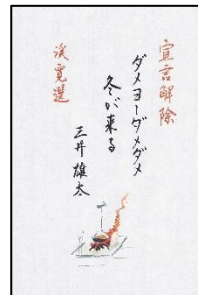 宣言解除
ダメヨーダメダメ
冬が来る
三井雄太
渓雲選